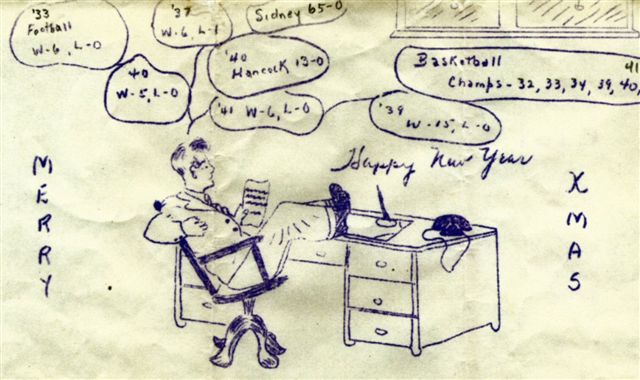 '33
Football
W-6, L-0
'37
W-6, L-1
Sidney 65-0
'40
Hancock 13-0
40
W-5, L-0
'41 W-6, L-0
'39
W-15, L-0
Basketball 41
Champs-32, 33, 34, 39, 40,
Happy New Year
MERRY
XMAS